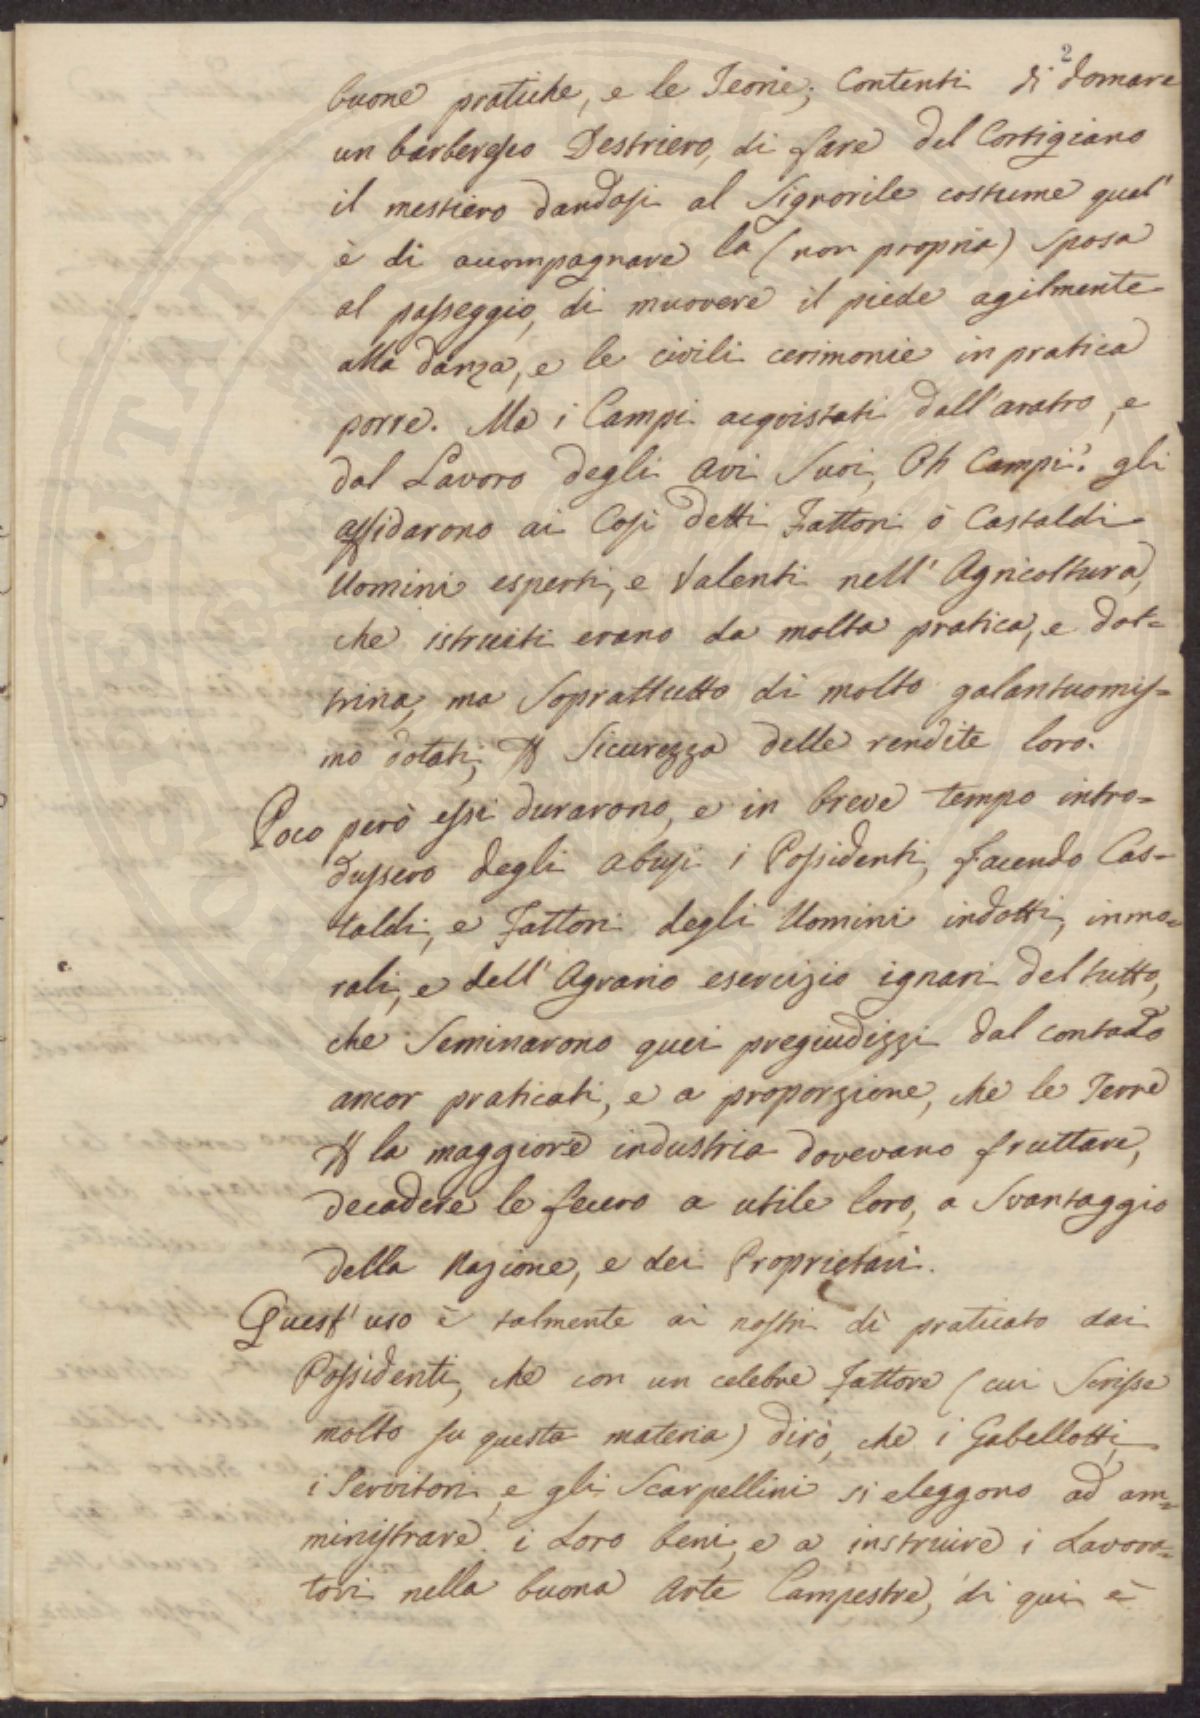 2
buone pratiche, e le Teorie; Contenti di domare
un barberesco Destriero, di fare del Cortigiano
il mestiero dandosi al Signorile costume qual'
è di accompagnare la (non propria) Sposa
al passeggio, di muovere il piede agilmente
alla danza, e le civili cerimonie in pratica
porre. Ma i Campi acquistati dall'aratro, e
dal Lavoro degli Avi Suoi, Oh Campi! gli
affidarono ai Così detti Fattori ò Castaldi
Uomini esperti, e Valenti nell'Agricoltura,
che istruiti erano da molta pratica, e dot=
trina, ma Soprattutto di molto galantuomis=
mo dotati, P Sicurezza delle rendite loro.
Poco però essi durarono, e in breve tempo intro=
dussero degli abusi i Possidenti, facendo Cas=
taldi, e Fattori degli Uomini indotti, inmo=
rali, e dell'Agrario esercizio ignari del tutto,
che Seminarono quei pregiudizzi dal contado
ancor praticati, e a proporzione, che le Terre
P la maggiore industria dovevano fruttare,
decadere le fecero a utile loro, a Svantaggio
della Nazione, e dei Proprietari.
Quest'uso è talmente ai nostri dì praticato dai
Possidenti, che con un celebre Fattore (cui Scrisse
molto su questa materia) dirò, che i Gabellotti,
i Servitori, e gli Scarpellini si eleggono ad am=
ministrare i Loro beni, e a instruire i Lavora=
tori nella buona Arte Campestre, di qui è